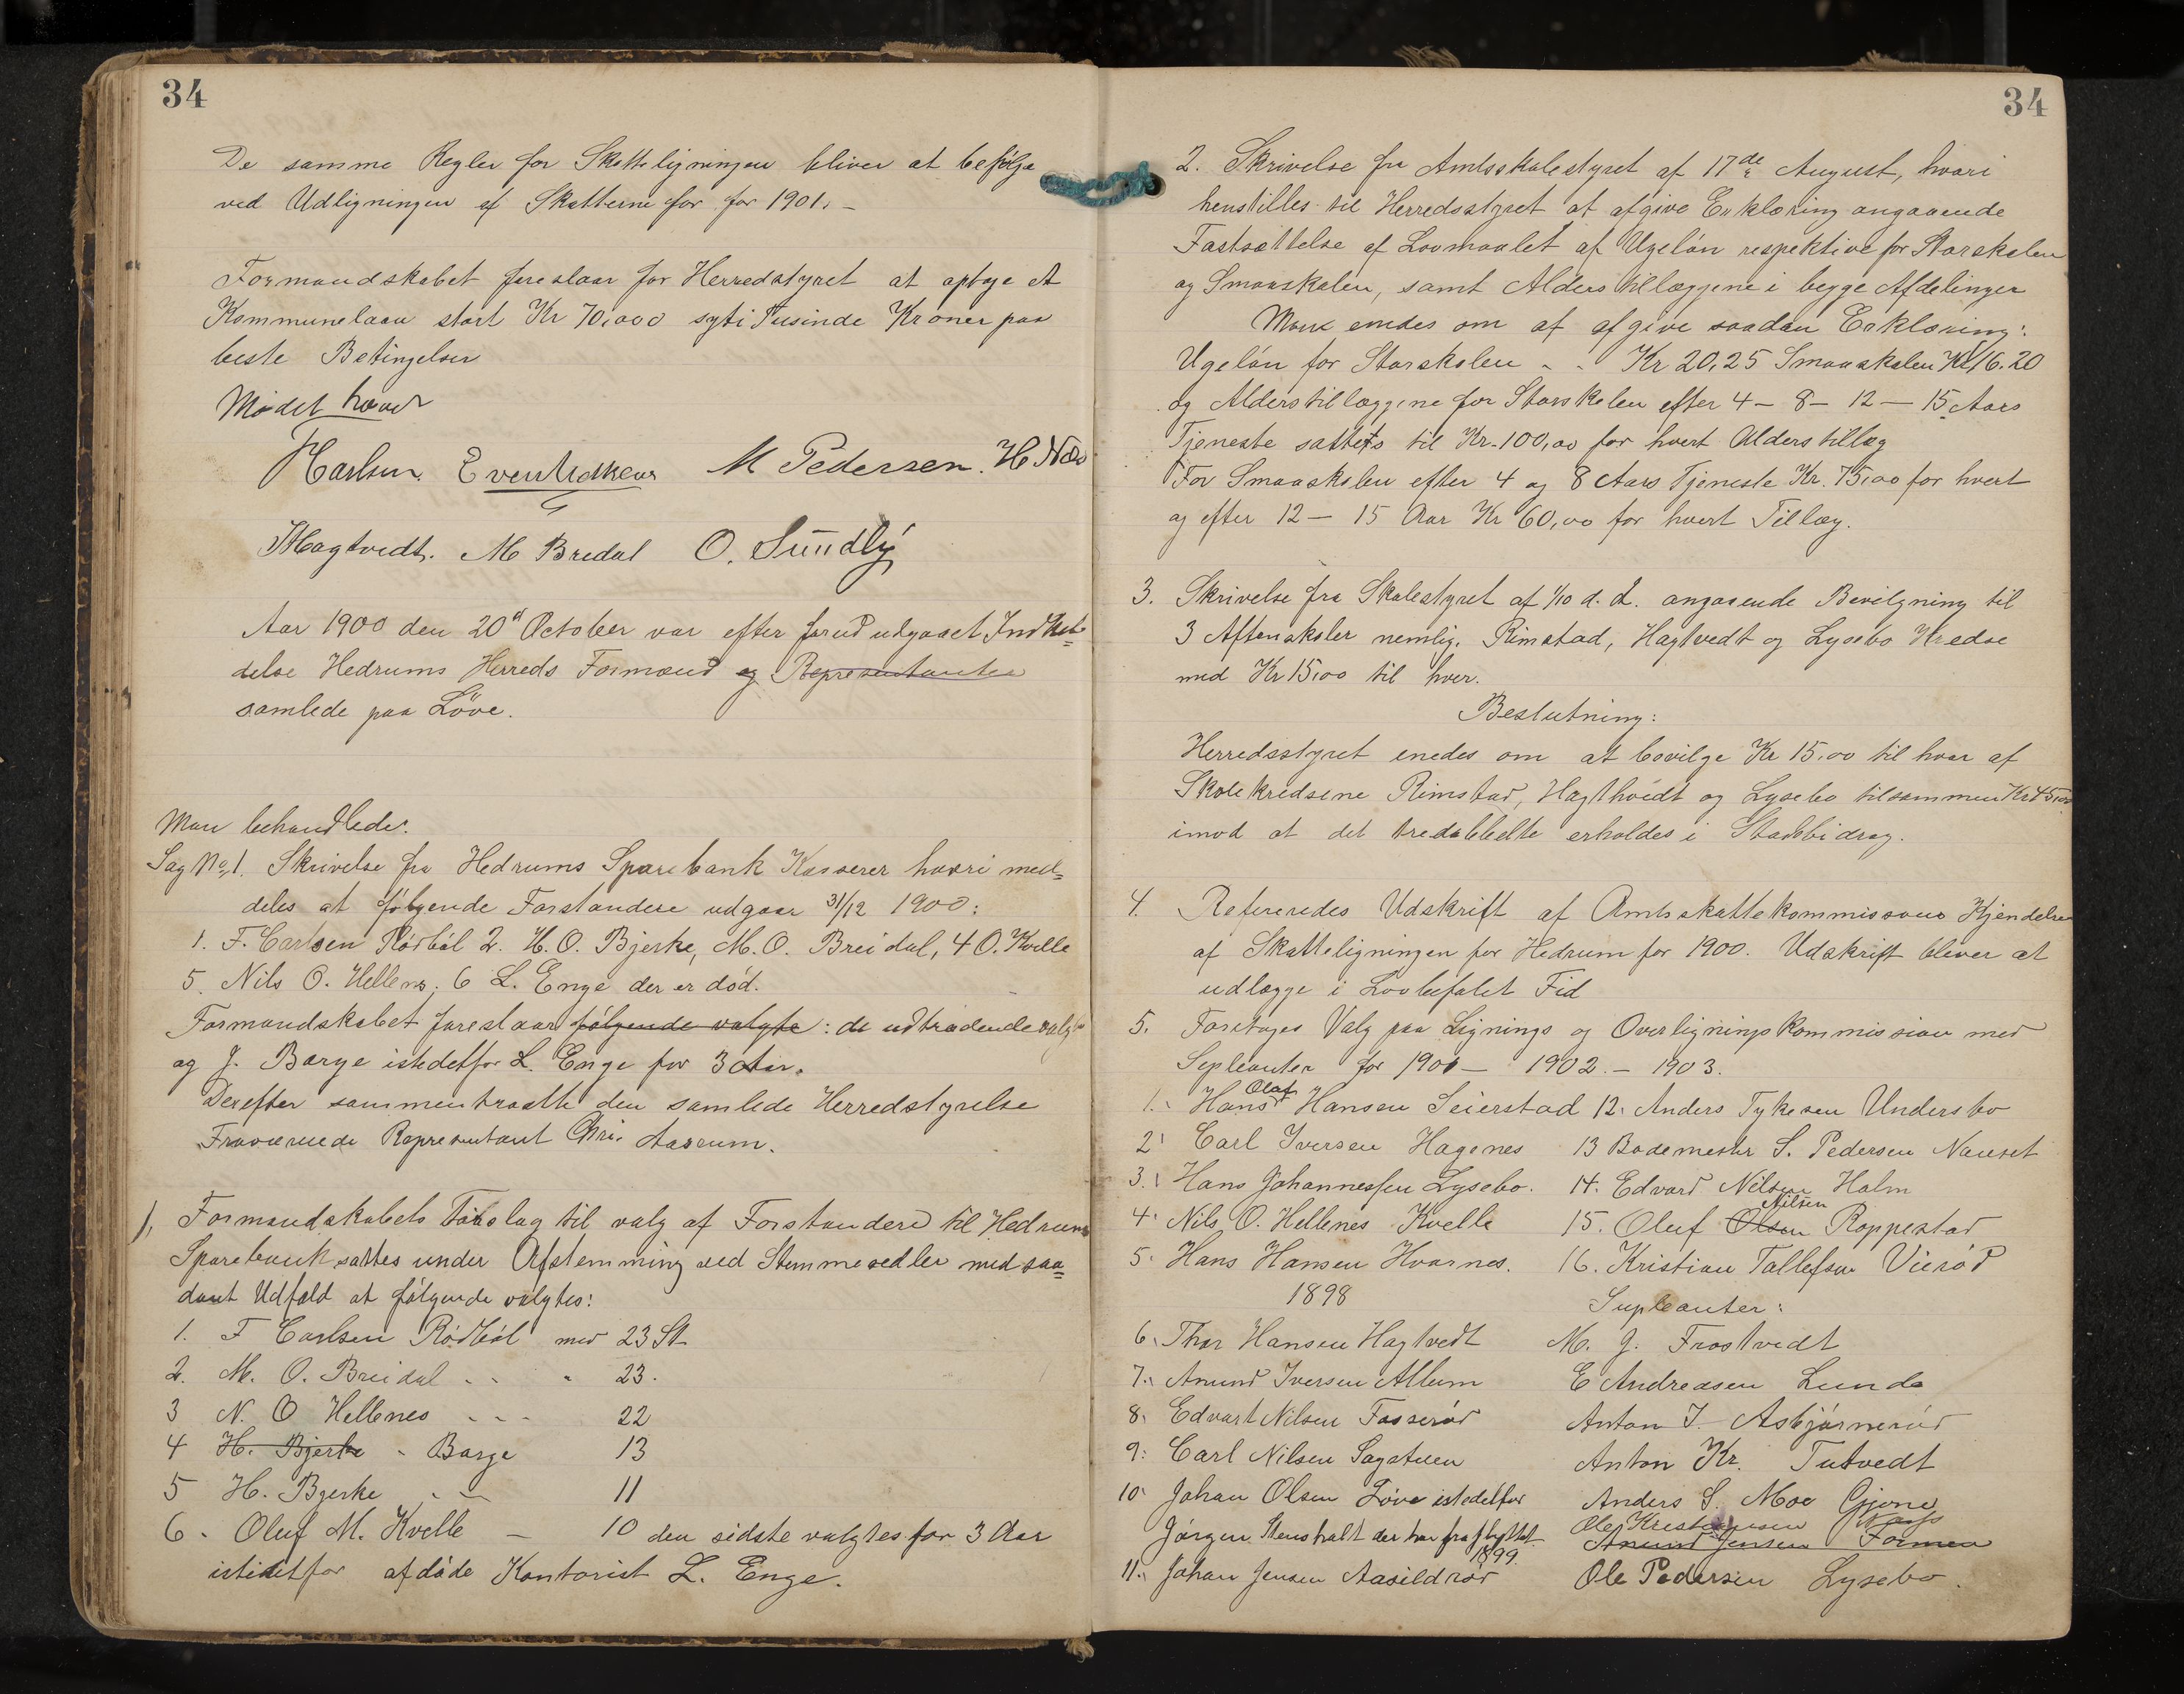 34
De samme Regler for Skatteligningen bliver at befølge
ved Udligningen af Skatterne for for 1901. –
Formandskabet foreslaar for Herredstyret at optage et
Kommunelaan stort Kr 70,000 sytti Tusinde Kroner paa
beste Betingelser
Mødet hævet
Carlsen. M Pedersen. H Næs
Hagtvedt. M Bredal O. Sundby
Aar 1900 den 20de October var efter forud udgaaet Indkal-
delse Hedrums Herreds Formænd og Representanter
samlede paa Löve.
Man behandlede:
Sag No 1. Skrivelse fra Hedrums Sparebank Kasserer hvori med=
deles at følgende Forstandere udgaar 31/12 1900:
1. F. Carlsen Rødbøl 2. H. O. Bjerke, M. O. Breidal, 4 O. Kvelle
5. Nils O. Hellenes, 6 L. Enge der er død.
Formandskabet foreslaar følgende valgte: de udtrædende valgt
og J. Barge istedetfor L. Enge for 3 Aar.
Derefter sammentraadte den samlede Herredstyrelse
Fraværende Representant Chri. Aarum.
1, Formandskabets Forslag til valg af Forstandere til Hedrums
Sparebank sattes under Afstemming ved Stemmesedler med saa=
dant Udfald at følgende valgtes:
1. F Carlsen Rødbøl med 23 St.
2. M. O. Breidal - - " 23.
3 N. O Hellenes - - - 22
4 H. Bjerke - Barge 13
5 H. Bjerke - - 11
6. Oluf M. Kvelle – 10 den sidste valgtes for 3 Aar
istedetfor afdøde Kontorist L. Enge.
34
2. Skrivelse fra Amtsskolestyret af 17de August, hvori
henstilles til Herredsstyret at afgive Erklæring angaaende
Fastsættelse af Lovmaalet af Ugeløn respektive for Storskolen
og Smaaskolen, samt Alderstillæggene i begge Afdelinger
Man enedes om at afgive saadan Erklæring:
Ugeløn for Storskolen - - Kr 20,25 Smaaskolen Kr 16.20
og Alderstillæggene for Storskolen efter 4 – 8 – 12 – 15 Aars
Tjeneste sattes til Kr. 100,00 for hvert Alderstillæg
For Smaaskolen efter 4 og 8 Aars Tjeneste Kr. 75,00 for hvert
og efter 12 – 15 Aar Kr 60,00 for hvert Tillæg.
3. Skrivelse fra Skolestyret af 1/10 d. A. angaaende Bevilgning til
3 Aftenskoler nemlig. Rimstad, Hagtvedt og Lysebo Kredse
med Kr 15,00 til hver.
Beslutning:
Herredsstyret enedes om at bevilge Kr 15,00 til hver af
Skolekredsene Rimstad, Hagthvedt og Lysebo tilsammen Kr 45,00
imod at det tredobbelte erholdes i Statsbidrag.
4. Refereredes Udskrift af Amtsskattekommissons Kjendelse
af Skatteligningen for Hedrum for 1900. Udskrift bliver at
udlægge i Lovbefalet Tid
5. Foretoges Valg paa Lignings og Overligningskommission med
Supleanter for 1901 – 1902 – 1903.
Olaf
1. Hans Hansen Seierstad 12. Anders Tykesen Undersbo
2. Carl Iversen Hagenes 13 Bademester S. Pedersen Nanset
3. Hans Johannessen Lysebo. 14. Edvard Nilsen Holm
Nilsen
4. Nils O. Hellenes Kvelle 15. Oluf Olsen Roppestad
5. Hans Hansen Hvarnes. 16. Kristian Tollefsen Vierød
1898 Supleanter:
6. Thor Hansen Hagtvedt M. J. Frostvedt
7. Amund Iversen Allum E Andreasen Lunde
8. Edvart Nilsen Fosserød Anton J. Asbjørnerød
9. Carl Nilsen Sagstuen Anton Kr. Tutvedt
10. Johan Olsen Løve istedetfor Anders S. Moe Gjone
Ole Kristensen
Jørgen Stensholt der har fraflyttet Amund Jensen
1899.
11. Johan Jensen Aasildrød Ole Pedersen Lysebo.